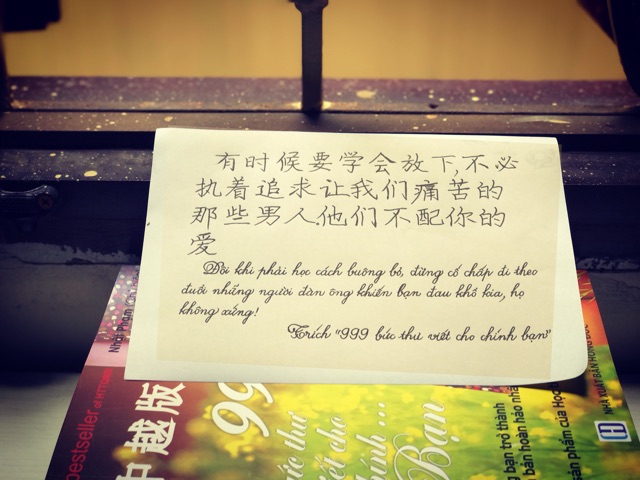 有时候要学会放下,不必
执着追求让我们痛苦的
那些男人.他们不配你的
爱
Đôi khi phải học cách buông bỏ, đừng cố chấp đi theo
đuổi những người đàn ông khiến bạn đau khổ kia, họ
không xứng!
Trích "999 bức thư viết cho chính bạn"
Nhật Phạm
bestseller of HTTC
中越版
99
ức thư
iết cho
hính ...
Bạn
ng bạn trở thành
n bản hoàn hảo nhấ
sản phẩm của Học
NHÀ XUẤT BẢN HỒNG ĐỨC